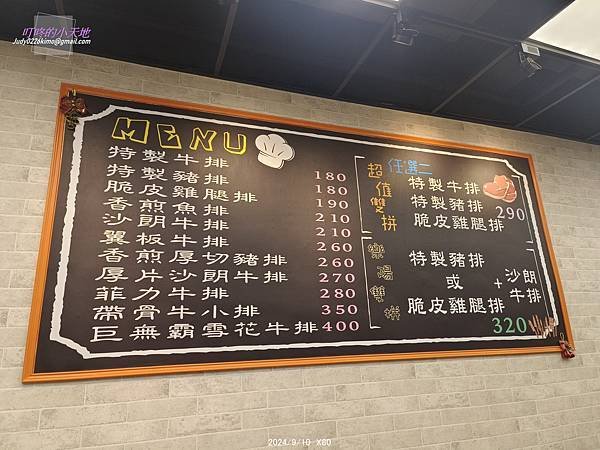 叮咚的小天地
Judy0226kimo@gmail.com
MENU
特製牛排 180
特製豬排 180
脆皮雞腿排 190
香煎魚排 210
沙朗牛排 210
翼板牛排 260
香煎厚切豬排 260
厚片沙朗牛排 270
菲力牛排 280
帶骨牛小排 350
巨無霸雪花牛排 400
超值雙拼
任選二
特製牛排
特製豬排
脆皮雞腿排
290
樂陽雙拼
特製豬排
或
脆皮雞腿排
+沙朗
牛排
320
2024/9/10 X60